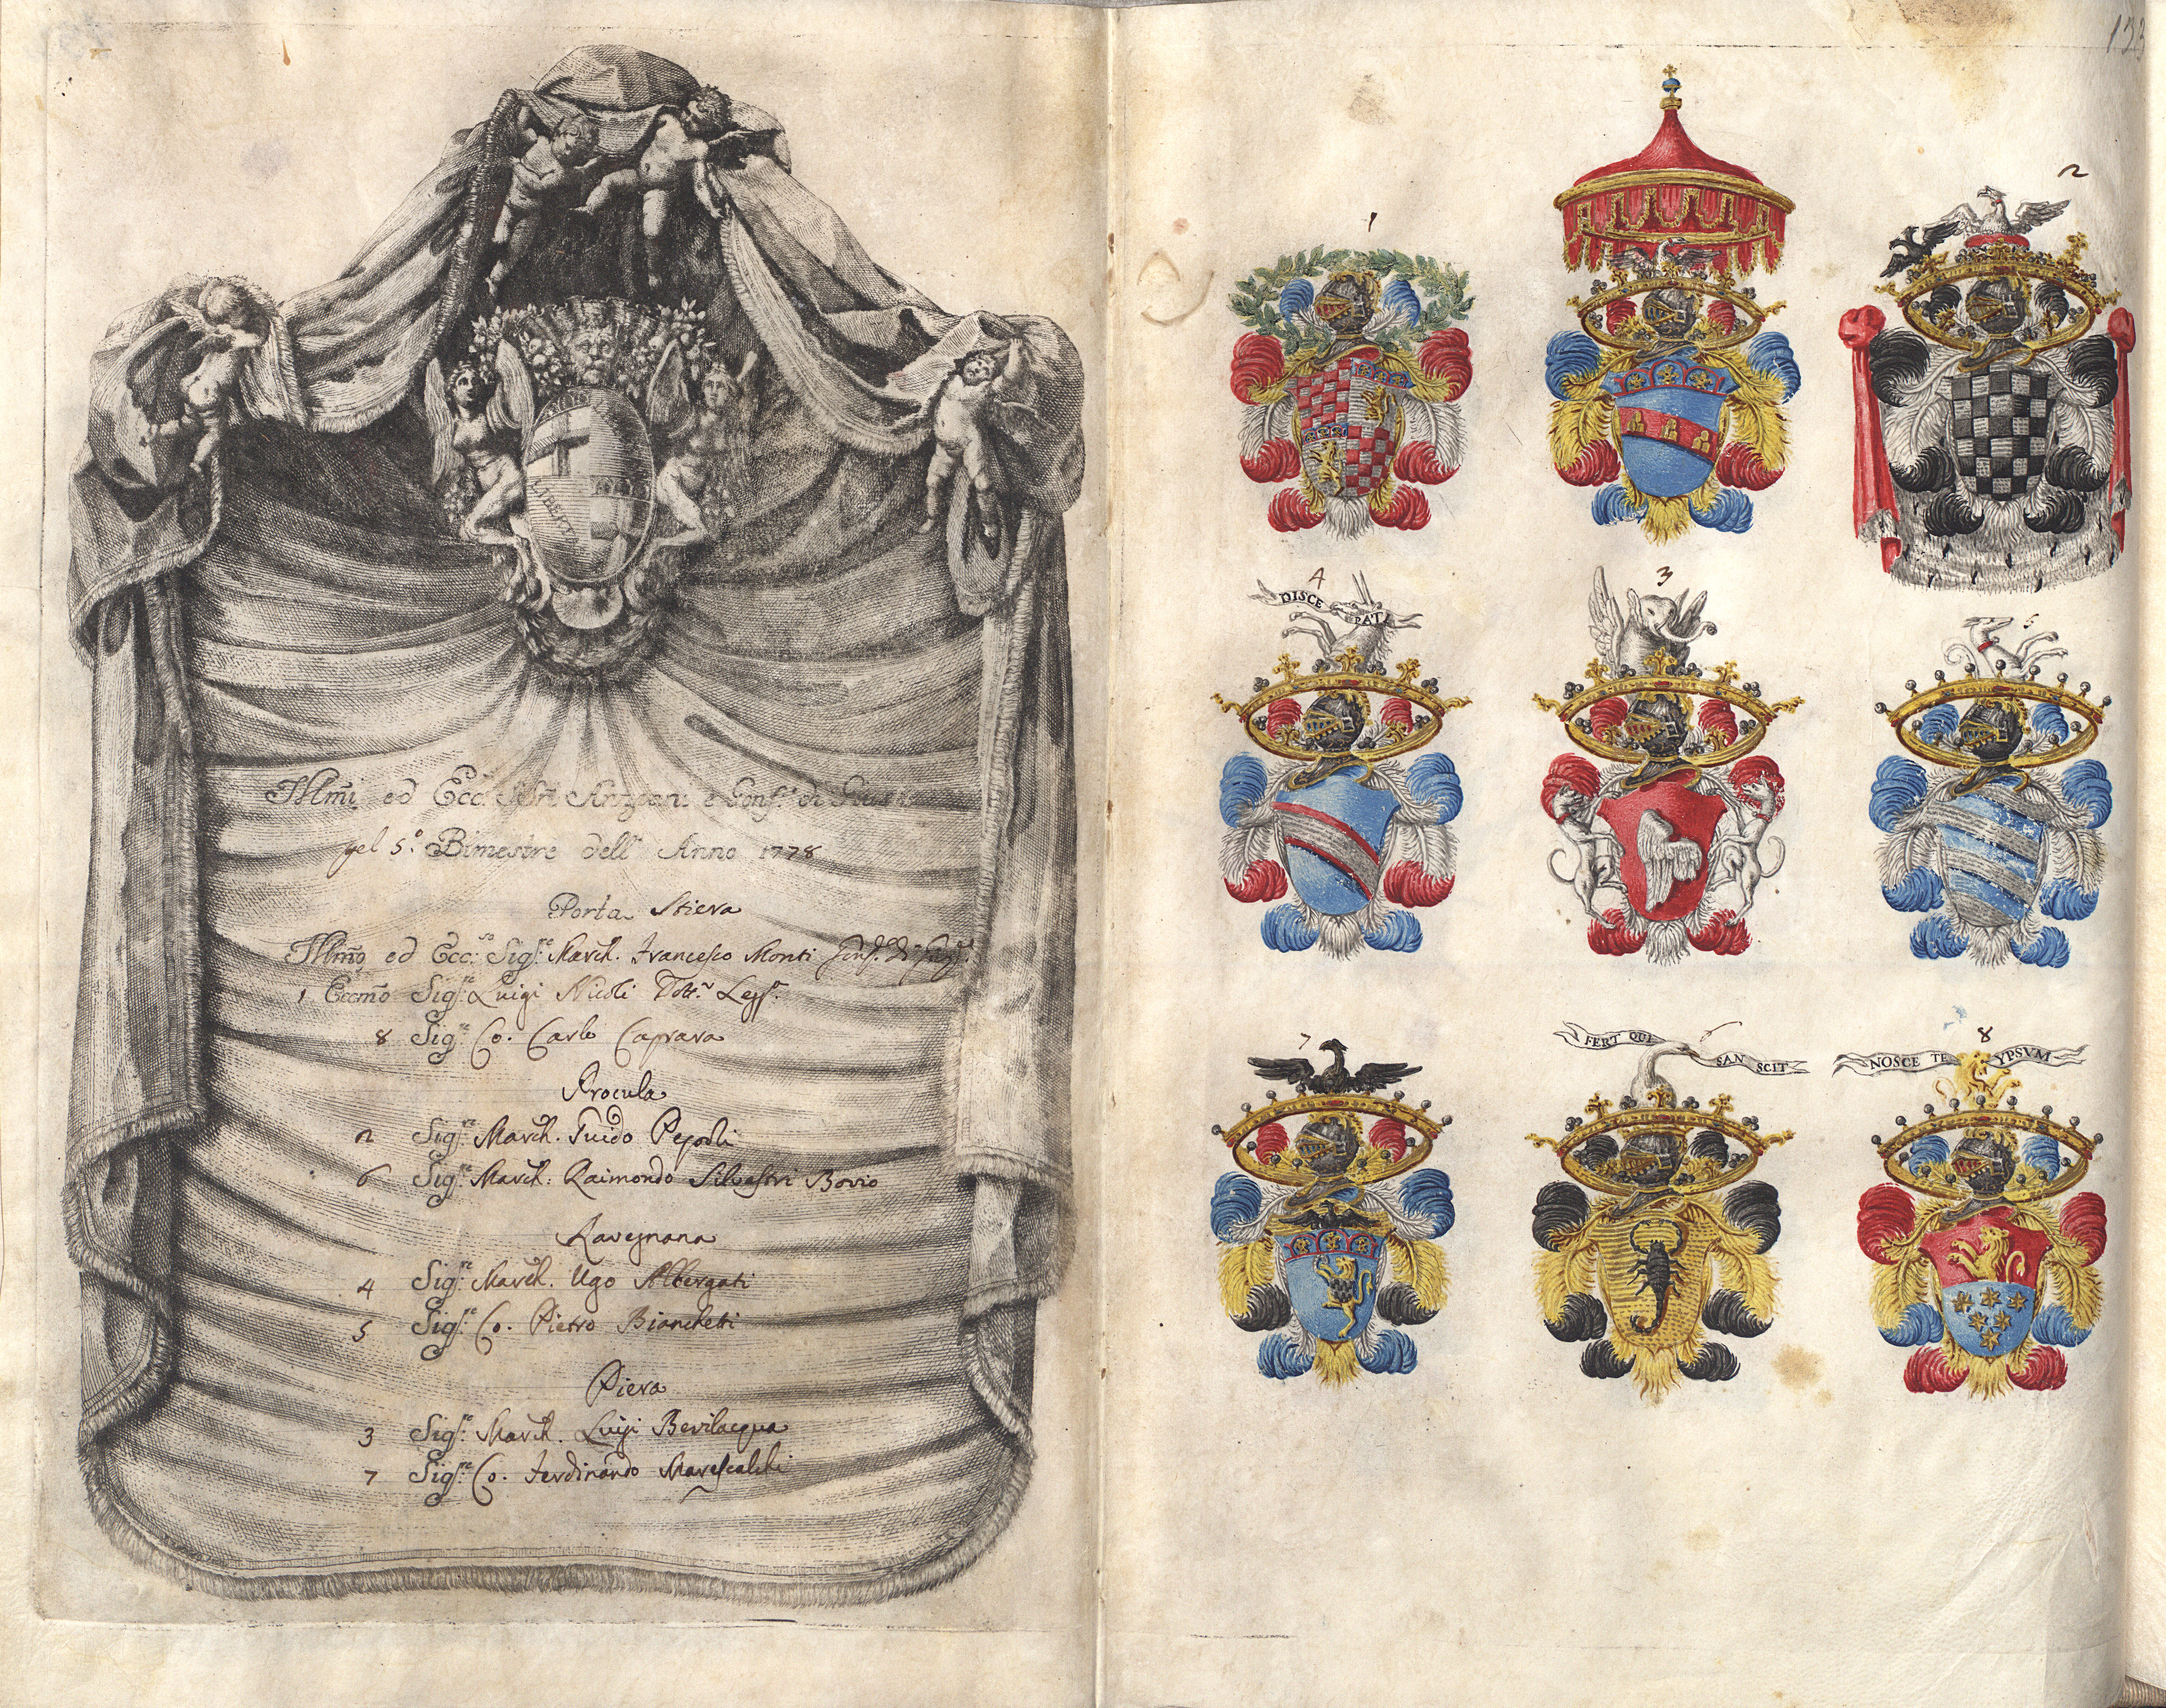 LIBERTAS
Illmi ed Ecc.si Sri Anziani e Gonf.re di Giust.
pel 5.o Bimestre dell' Anno 1778
Porta Stiera
Illmo ed Ecc.so Sig.re March. Francesco Monti Gonf.re di Giust.
1 Eccmo Sig.re Luigi Nicoli Dott.r Legg.
8 Sig.re Co. Carlo Caprara
Procula
2 Sig.re March. Guido Pepoli
6 Sig.re March. Raimondo Silvestri Bovio
Ravegnana
4 Sig.re March. Ugo Albergati
5 Sig.re Co. Pietro Bianchetti
Piera
3 Sig.re March. Luigi Bevilacqua
7 Sig.re Co. Ferdinando Marescalchi
133
1
2
4
DISCE PATI
3
5
7
FERT QUI SAN SCIT
6
8
NOSCE TE YPSVM